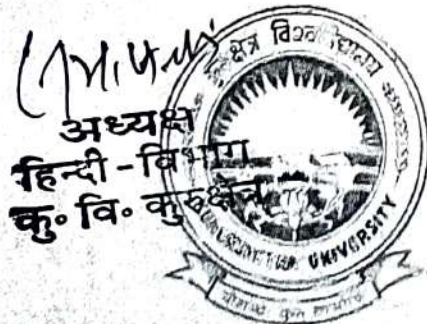 अध्यक्ष
हिन्दी-विभाग
कु॰ वि॰ कुरुक्षेत्र
कुरुक्षेत्र विश्वविद्यालय
KURUKSHETRA UNIVERSITY